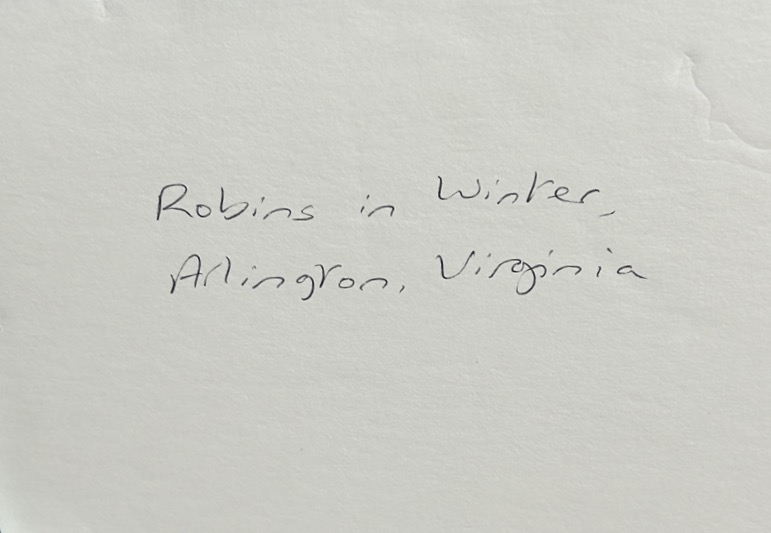 Robins in Winter,
Arlington, Virginia